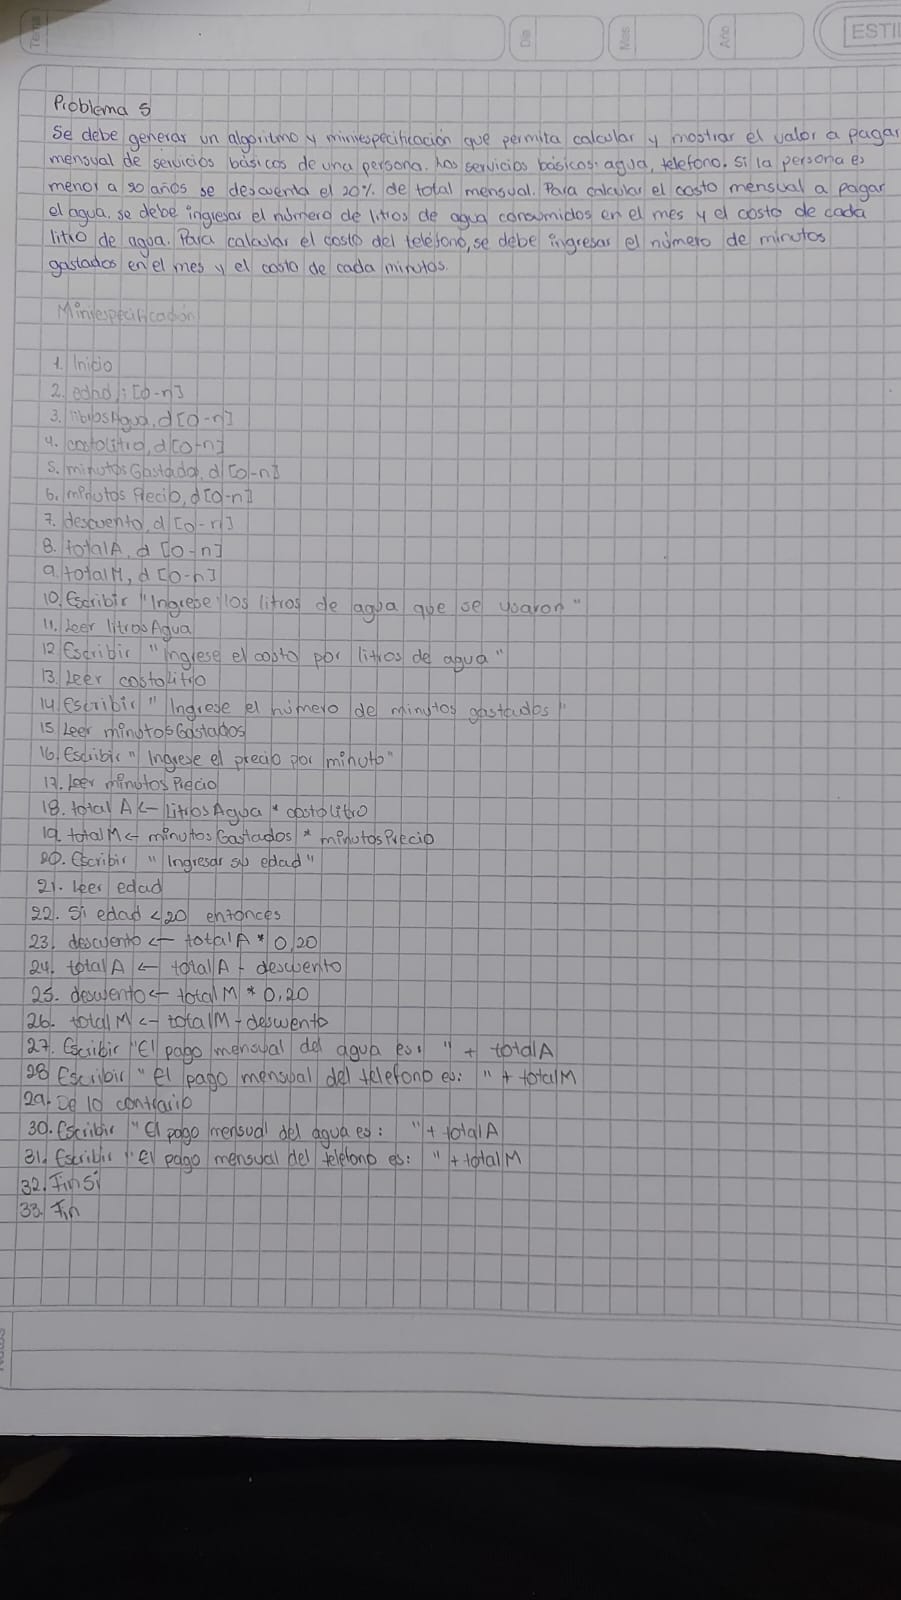 Tema
Dia
Mes
Año
ESTIL
Problema 5
Se debe generar un algoritmo y miniespecificación que permita calcular y mostrar el valor a pagar
mensual de servicios básicos de una persona. Los servicios básicos: agua, telefono. Si la persona es
menor a 50 años se descuenta el 20% de total mensual. Para calcular el costo mensual a pagar
el agua, se debe ingresar el número de litros de agua consumidos en el mes y el costo de cada
litro de agua. Para calcular el costo del teléfono, se debe ingresar el número de minutos
gastados en el mes y el costo de cada minutos.
Miniespecificación
1. Inicio
2. edad, i [0-n]
3. litrosAgua, d [0-n]
4. costolitro, d [0-n]
5. minutosGastado, d [0-n]
6. minutos Precio, d [0-n]
7. descuento, d [0-n]
8. totalA, d [0-n]
9. totalM, d [0-n]
10. Escribir "Ingrese los litros de agua que se usaron"
11. Leer litrosAgua
12 Escribir "Ingrese el costo por litros de agua"
13. Leer costolitro
14. Escribir "Ingrese el número de minutos gastados"
15 Leer minutosGastados
16. Escribir "Ingrese el precio por minuto"
17. Leer minutos Precio
18. total A <- LitrosAgua * costolitro
19. totalM <- minutosGastados * minutosPrecio
20. Escribir "Ingresar su edad"
21. Leer edad
22. Si edad <20 entonces
23. descuento <- totalA * 0,20
24. totalA <- totalA - descuento
25. descuento <- totalM * 0,20
26. totalM <- totalM - descuento
27. Escribir "El pago mensual del agua es: " + totalA
28 Escribir "el pago mensual del telefono es: " + totalM
29. De lo contrario
30. Escribir "El pago mensual del agua es: " + totalA
31. Escribir "el pago mensual del telefono es: " + totalM
32. FinSi
33. Fin